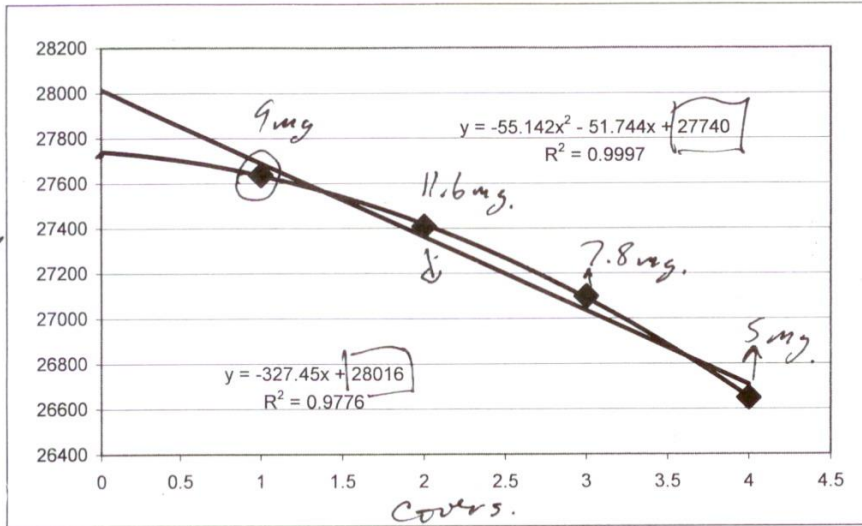 28200
28000
27800
27600
27400
27200
27000
26800
26600
26400
9mg
y = -55.142x² - 51.744x + 27740
R² = 0.9997
11.6mg.
7.8mg.
5mg.
y = -327.45x + 28016
R² = 0.9776
0 0.5 1 1.5 2 2.5 3 3.5 4 4.5
Covers.